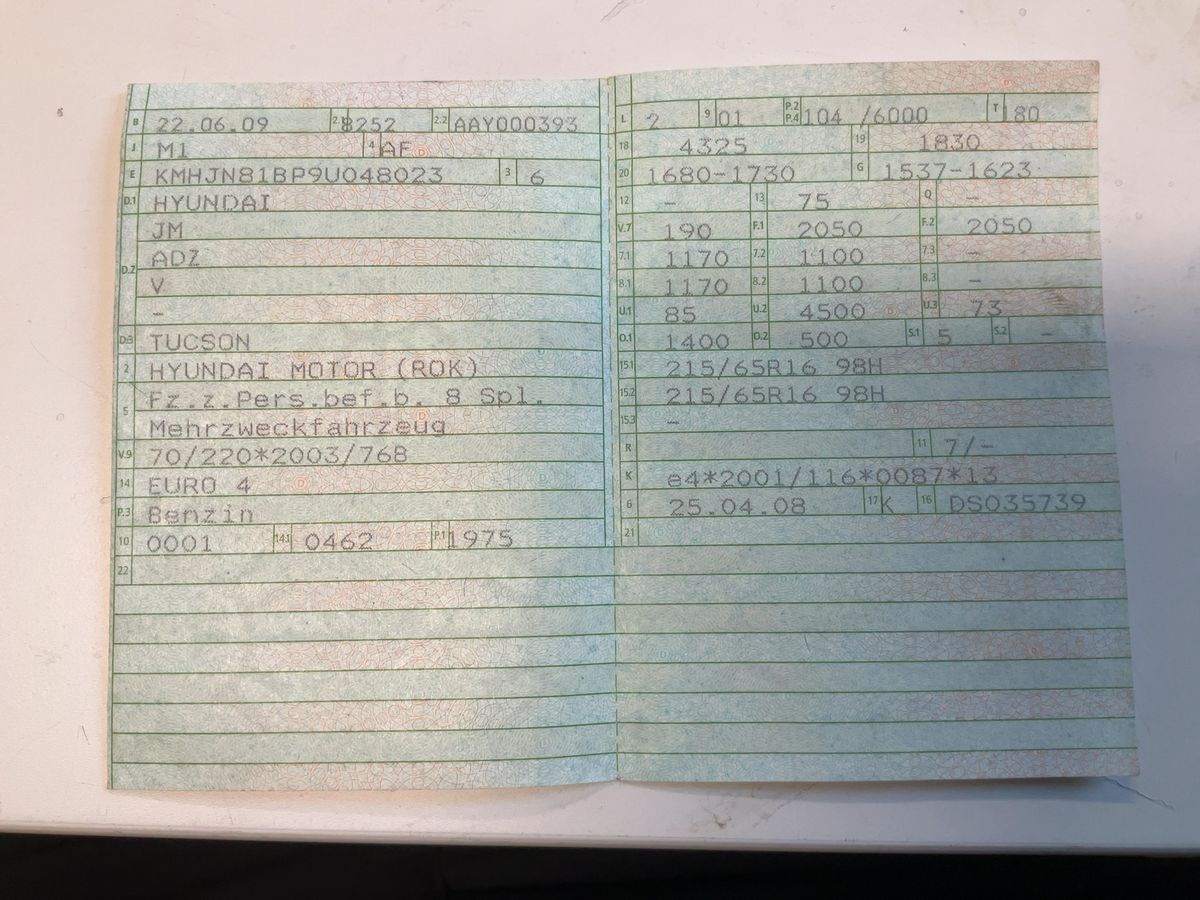 B 22.06.09 2.1 8252 2.2 AAY000393
J M1 4 AF
E KMHJN81BP9U048023 3 6
D.1 HYUNDAI
JM
D.2 ADZ
V
–
D.3 TUCSON
2 HYUNDAI MOTOR (ROK)
5 Fz.z.Pers.bef.b. 8 Spl.
Mehrzweckfahrzeug
V.9 70/220*2003/76B
14 EURO 4
P.3 Benzin
10 0001 14.1 0462 P.1 1975
22
L 2 9 01 P.2 P.4 104 /6000 T 180
18 4325 19 1830
20 1680-1730 G 1537-1623
12 – 13 75 Q –
V.7 190 F.1 2050 F.2 2050
7.1 1170 7.2 1100 7.3 –
8.1 1170 8.2 1100 8.3 –
U.1 85 U.2 4500 U.3 73
O.1 1400 O.2 500 S.1 5 S.2 –
15.1 215/65R16 98H
15.2 215/65R16 98H
15.3 –
R 11 7/-
K e4*2001/116*0087*13
6 25.04.08 17 K 16 DS035739
21